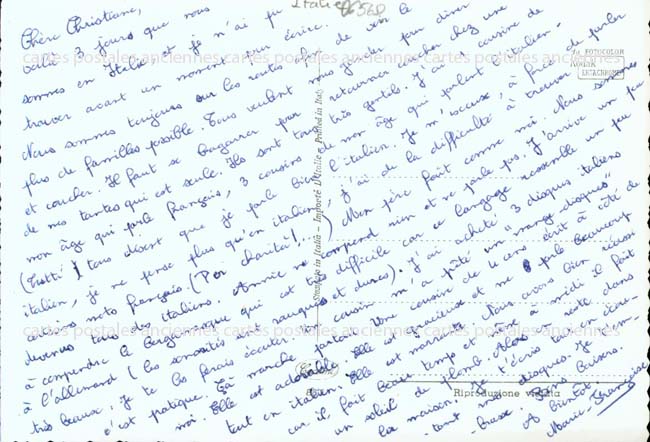 Italie
Chère Christiane,
voilà 3 jours que nous
sommes en Italie et je n'ai pu
trouver avant un moment pour écrire.
Nous sommes toujours sur les routes afin de voir le
plus de familles possible. Tous veulent nous garder pour dîner
et coucher. Il faut se bagarrer pour retourner coucher chez une
de mes tantes qui est seule. Ils sont tous très gentils. J'ai 1 cousine de
mon âge qui parle français, 3 cousins de mon âge qui parlent l'italien.
(Tutti!) tous disent que je parle bien l'italien. Je m'excuse, à force de parler
italien, je ne pense plus qu'en italien, j'ai de la difficulté à trouver
certains mots français. (Per charita!...) Mon père fait comme moi. Nous sommes
devenus tous italiens. Annie ne comprend rien et ne parle pas. J'arrive un peu
à comprendre le bergamasque qui est très difficile car ce langage ressemble un peu
à l'allemand (les sonorités sont rauques et dures). J'ai acheté 3 disques italiens
très beaux, je te les ferais écouter. 1 cousin m'a prêté un "mange-disques"
c'est pratique. Ça marche partout. Une cousine de 4 ans écrit à côté de
moi. Elle est adorable. Elle est gracieuse et me parle beaucoup
tout en italien. Elle est marrante. Nous avons bien
car il fait beau temps et à midi il fait
un soleil de plomb. Alors on reste dans
la maison. Je t'écris tout en écou-
tant mes disques. Je t'em-
brasse. Bons Baisers.
A bientôt.
Marie-Françoise
FOTOCOLOR
KODAK
EKTACHROME
Stampato in Italia - Importé D'Italie - Printed in Italy
Riproduzione vietata
cartes postales anciennes cartes postales anciennes cartes postales anciennes
cartes postales anciennes cartes postales anciennes cartes postales anciennes